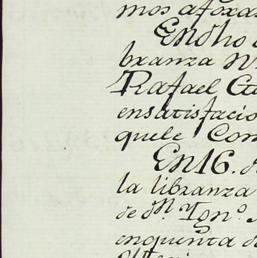 mos afoxa
En dho
branza N
Rafael
ensatisfacio
quele Con
En 16. d
la libranza
de dn. Ygno.
enquenta d